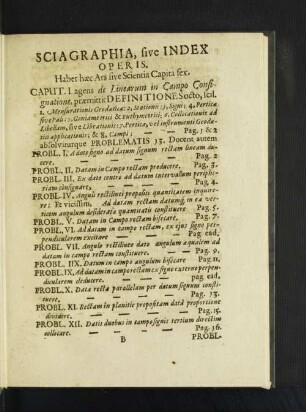 SCIAGRAPHIA, sive INDEX
OPERIS.
Habet hæc Ars sive Scientia Capita sex.
CAPUT. I agens de Linearum in Campo Consi-
gnatione, præmittit DEFINITIONES octo, scil.
1. Mensurationis Geodatica: 2, Stationis: 3, Signi: 4, Pertica
sive Pali: 5, Goniametriæ & euthymetriæ; 6, Collocationis ad
Libellam, sive Librationis: 7, Pertica, vel instrumenti Geoda-
tici applicationis; & 8, Campi; Pag. 1 & 2
absolviturque PROBLEMATIS 33. Docent autem
PROBL. I, A dato signo ad datum signum rectam lineam du-
cere. Pag. 2
PROBL. II, Datam in Campo rectam producere. Pag. 3.
PROBL. III, Ex dato centro ad datum intervallum periphe-
riam consignare. Pag. 4.
PROBL. IV, Anguli rectilinei propositi quantitatem inquire-
re: Et vicissim, Ad datam rectam datumq; in ea ver-
ticem angulum desiderata quantitatis constituere. Pag. 5.
PROBL. V. Datam in Campo rectam bisecare. Pag. 7.
PROBL. VI. Ad datam in campo rectam, ex ejus signo per-
pendicularem excitare Pag. ead.
PROBL. VII. Angulo rectilineo dato angulum aqualem ad
datam in campo rectam constituere. Pag. 9.
PROBL. IIX. Datum in campo angulum bisecare Pag. 11.
PROBL. IX, Ad datam in campo rectam ex signo externo perpen-
dicularem deducere. Pag. ead.
PROBL. X. Data recta parallelam per datum signum consti-
tuere. Pag. 13.
PROBL. XI. Rectam in planitie propositam data proportione
dividere. Pag. 15.
PROBL. XII. Datis duobus in campo signis tertium directim
collocare. Pag. 16.
B PROBL-